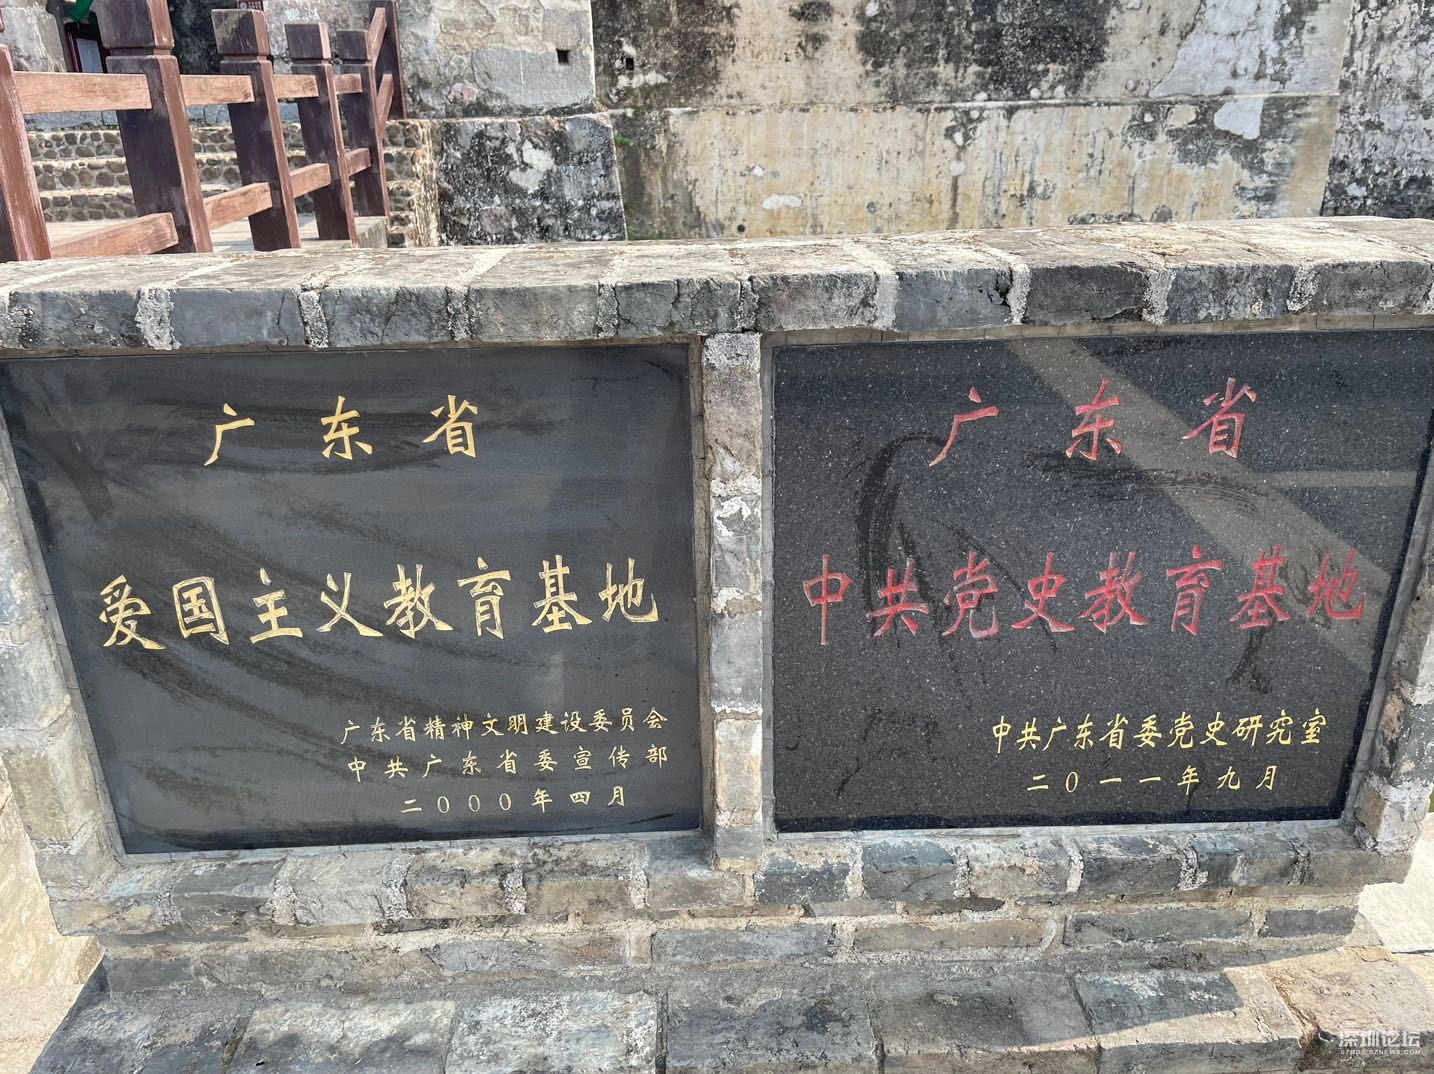 广东省
爱国主义教育基地
广东省精神文明建设委员会
中共广东省委宣传部
二000年四月
广东省
中共党史教育基地
中共广东省委党史研究室
二0一一年九月
深圳论坛
SZBBS.SZNEWS.COM